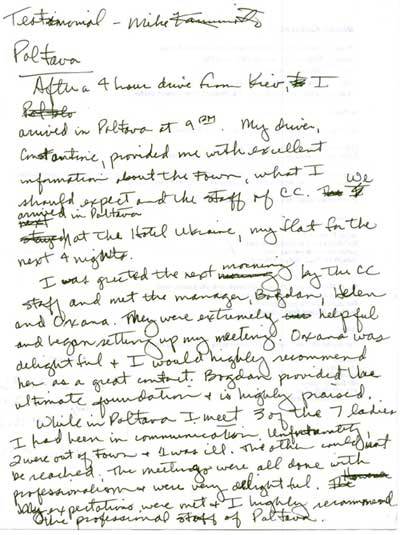 Testimonial - Mike
Poltava
After a 4 hour drive from Kiev, I
arrived in Poltava at 9 PM. My driver,
Constantine, provided me with excellent
information about the town, what I
should expect and the staff of CC. We
arrived in Poltava
at the Hotel Ukraine, my flat for the
next 4 nights.
I was greeted the next morning by the CC
staff and met the manager, Bogdan, Helen
and Oxana. They were extremely helpful
and began setting up my meeting. Oxana was
delightful & I would highly recommend
her as a great contact. Bogdan provided the
ultimate foundation & is highly praised.
While in Poltava I meet 3 of the 7 ladies
I had been in communication. Unfortunately,
2 were out of town & 1 was ill. The other could not
be reached. The meetings were all done with
professionalism & were very delightful.
My expectations were met & I highly recommend
the professional staff of Poltava.